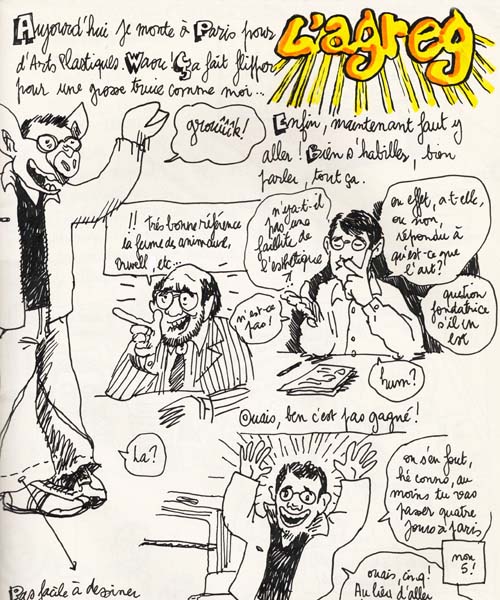 Aujourd'hui je monte à Paris pour
L'agreg
d'Arts Plastiques. Waou! Ça fait flipper
pour une grosse truie comme moi...
grouîîîk!
Enfin, maintenant faut y
aller! Bien s'habiller, bien
parler, tout ça.
!! Très bonne référence
la ferme des animaux,
Orwell, etc...
n'y a-t-il
pas une
faillite de
l'esthétique
n'est-ce
pas!
en effet, a-t-elle,
ou non,
répondu à
qu'est-ce que
l'art?
question
fondatrice
s'il en
est
hum?
Ouais, ben c'est pas gagné!
Là?
on s'en fout,
hé conno, au
moins tu vas
passer quatre
jours à Paris
non
5!
ouais, cinq!
Au lieu d'aller
Pas facile à dessiner